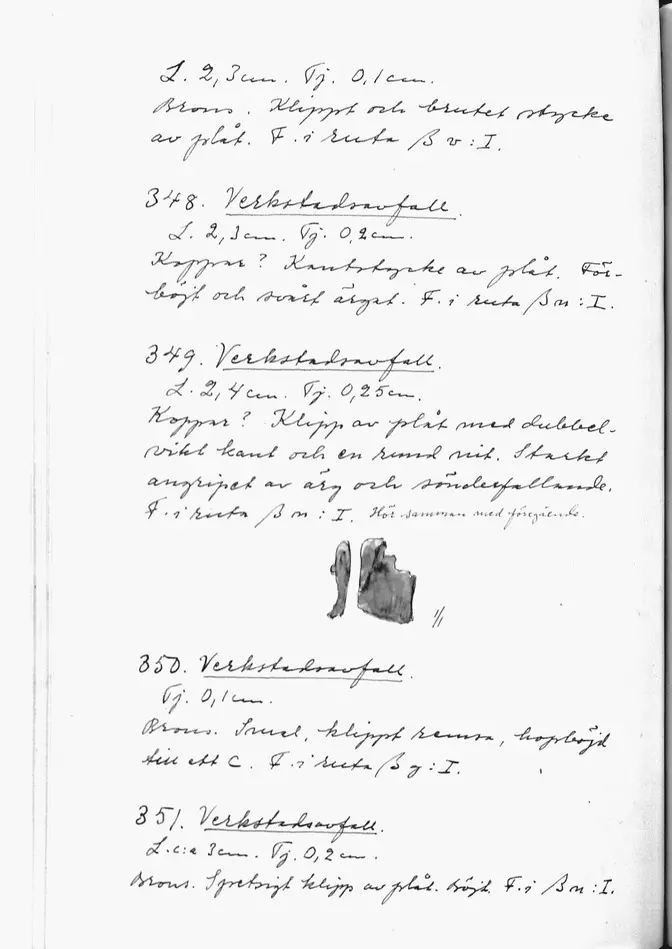 L. 2,3cm. Tj. 0,1cm.
Brons. Klippt och brutet stycke
av plåt. F. i ruta β v : I.
348. Verkstadsavfall.
L. 2,3cm. Tj. 0,2cm.
Koppar? Kantstycke av plåt. För-
böjt och svårt ärgat. F. i ruta β n : I.
349. Verkstadsavfall.
L. 2,4cm. Tj. 0,25cm.
Koppar? Klipp av plåt med dubbel-
vikt kant och en rund nit. Starkt
angripet av ärg och sönderfallande.
F. i ruta β n : I. Hör samman med föregående.
1/1
350. Verkstadsavfall.
Tj. 0,1cm.
Brons. Smal, klippt remsa, hopböjd
till ett C. F. i ruta β y : I.
351. Verkstadsavfall.
L. c:a 3cm. Tj. 0,2cm.
Brons. Spetsigt klipp av plåt. Böjt. F. i β n : I.